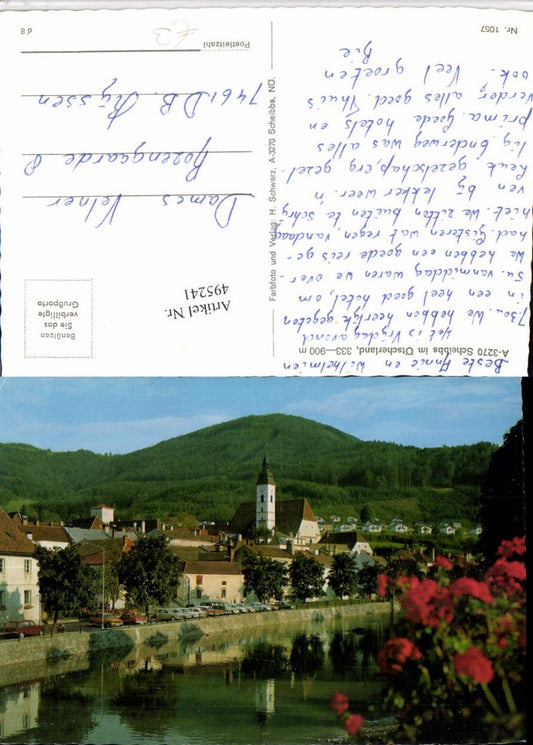 Nr. 1057
A-3270 Scheibbs im Ötscherland, 333—900 m
Beste Annie en Wilhelmien
Het is Vrijdagavond
7.30u. We hebben heerlijk gegeten
in een heel goed hotel, om
5u. vanmiddag waren we over-
We hebben een goede reis ge-
had. Gisteren wat regen, vandaag
niet. We zitten buiten te schrij
ven bij lekker weer. 'n
leuk gezelschap, erg gezel-
lig. Onderweg was alles
prima. Goede hotels en
verder alles goed. Thuis
ook. Veel groeten
Rie
Farbfoto und Verlag: H. Schwarz, A-3270 Scheibbs, NÖ.
d 8
Postleitzahl
€3
Dames Velner
Rozengaarde 8
7461 D.B. Rijssen
Artikel Nr.
495241
Benützen
Sie das
verbilligte
Grußporto